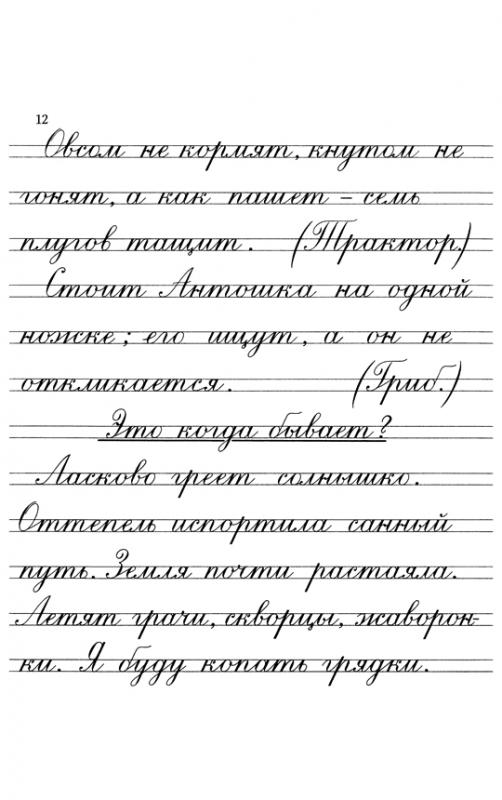 12
Овсом не кормят, кнутом не
гонят, а как пашет – семь
плугов тащит. (Трактор.)
Стоит Антошка на одной
ножке; его ищут, а он не
откликается. (Гриб.)
Это когда бывает?
Ласково греет солнышко.
Оттепель испортила санный
путь. Земля почти растаяла.
Летят грачи, скворцы, жаворон-
ки. Я буду копать грядки.